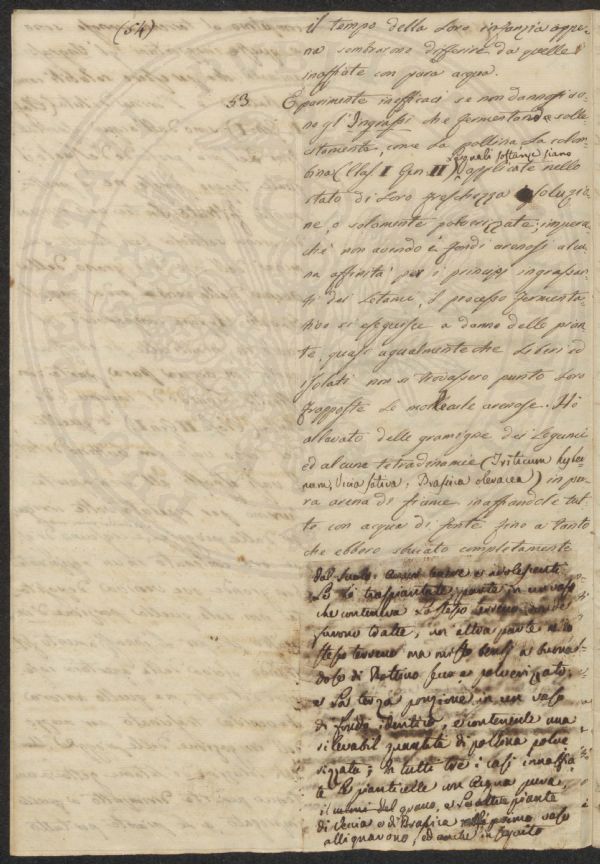 (54)
il tempo della loro infanzia appe-
na sembrarono differire da quelle
inaffiate con pura acqua.
53 E parimente inefficaci se non dannosi so-
no gl'Ingrassi che fermentando solle-
citamente, come la pollina, la colom-
bina (Clas. I Gen. II) segnali sostanze siano
applicate nello
stato di loro freschezza soluzio-
ne, o solamente polverizzate; imperoc-
chè non avendo i fondi arenosi alcu-
na affinità per i principj ingrassan-
ti dei Letami, il processo fermenta-
tivo si eseguisce a danno delle pian-
te, quasi agualmente che liberi ed
isolati non si trovassero punto loro
frapposte le molecule arenose. Ho
allevato delle gramigne dei Legumi
ed alcune tetradinamie (Triticum hyber-
num, Vicia sativa, Brassica oleracea) in pu-
ra arena di fiume inaffiandole tut-
te con acqua di fonte fino a tanto
che ebbero sbucato completamente
dal suolo. tenere e adolescenti
Le ho traspiantate parte in un vaso
che conteneva lo stesso terreno donde
furono tratte, un altra parte nello
stesso terreno ma misto bensì a buona
dose di secco e polverizzato;
e la terza porzione in un vaso
di fondo identico, e contenente una
rilevabil quantità di pollina polve-
rizzata; In tutti tre i casi innaffia-
te le pianticelle con acqua pura,
il del grano, e le altre piante
di Vecia e di Brassica primo vaso
allignarono, ed anche in seguito